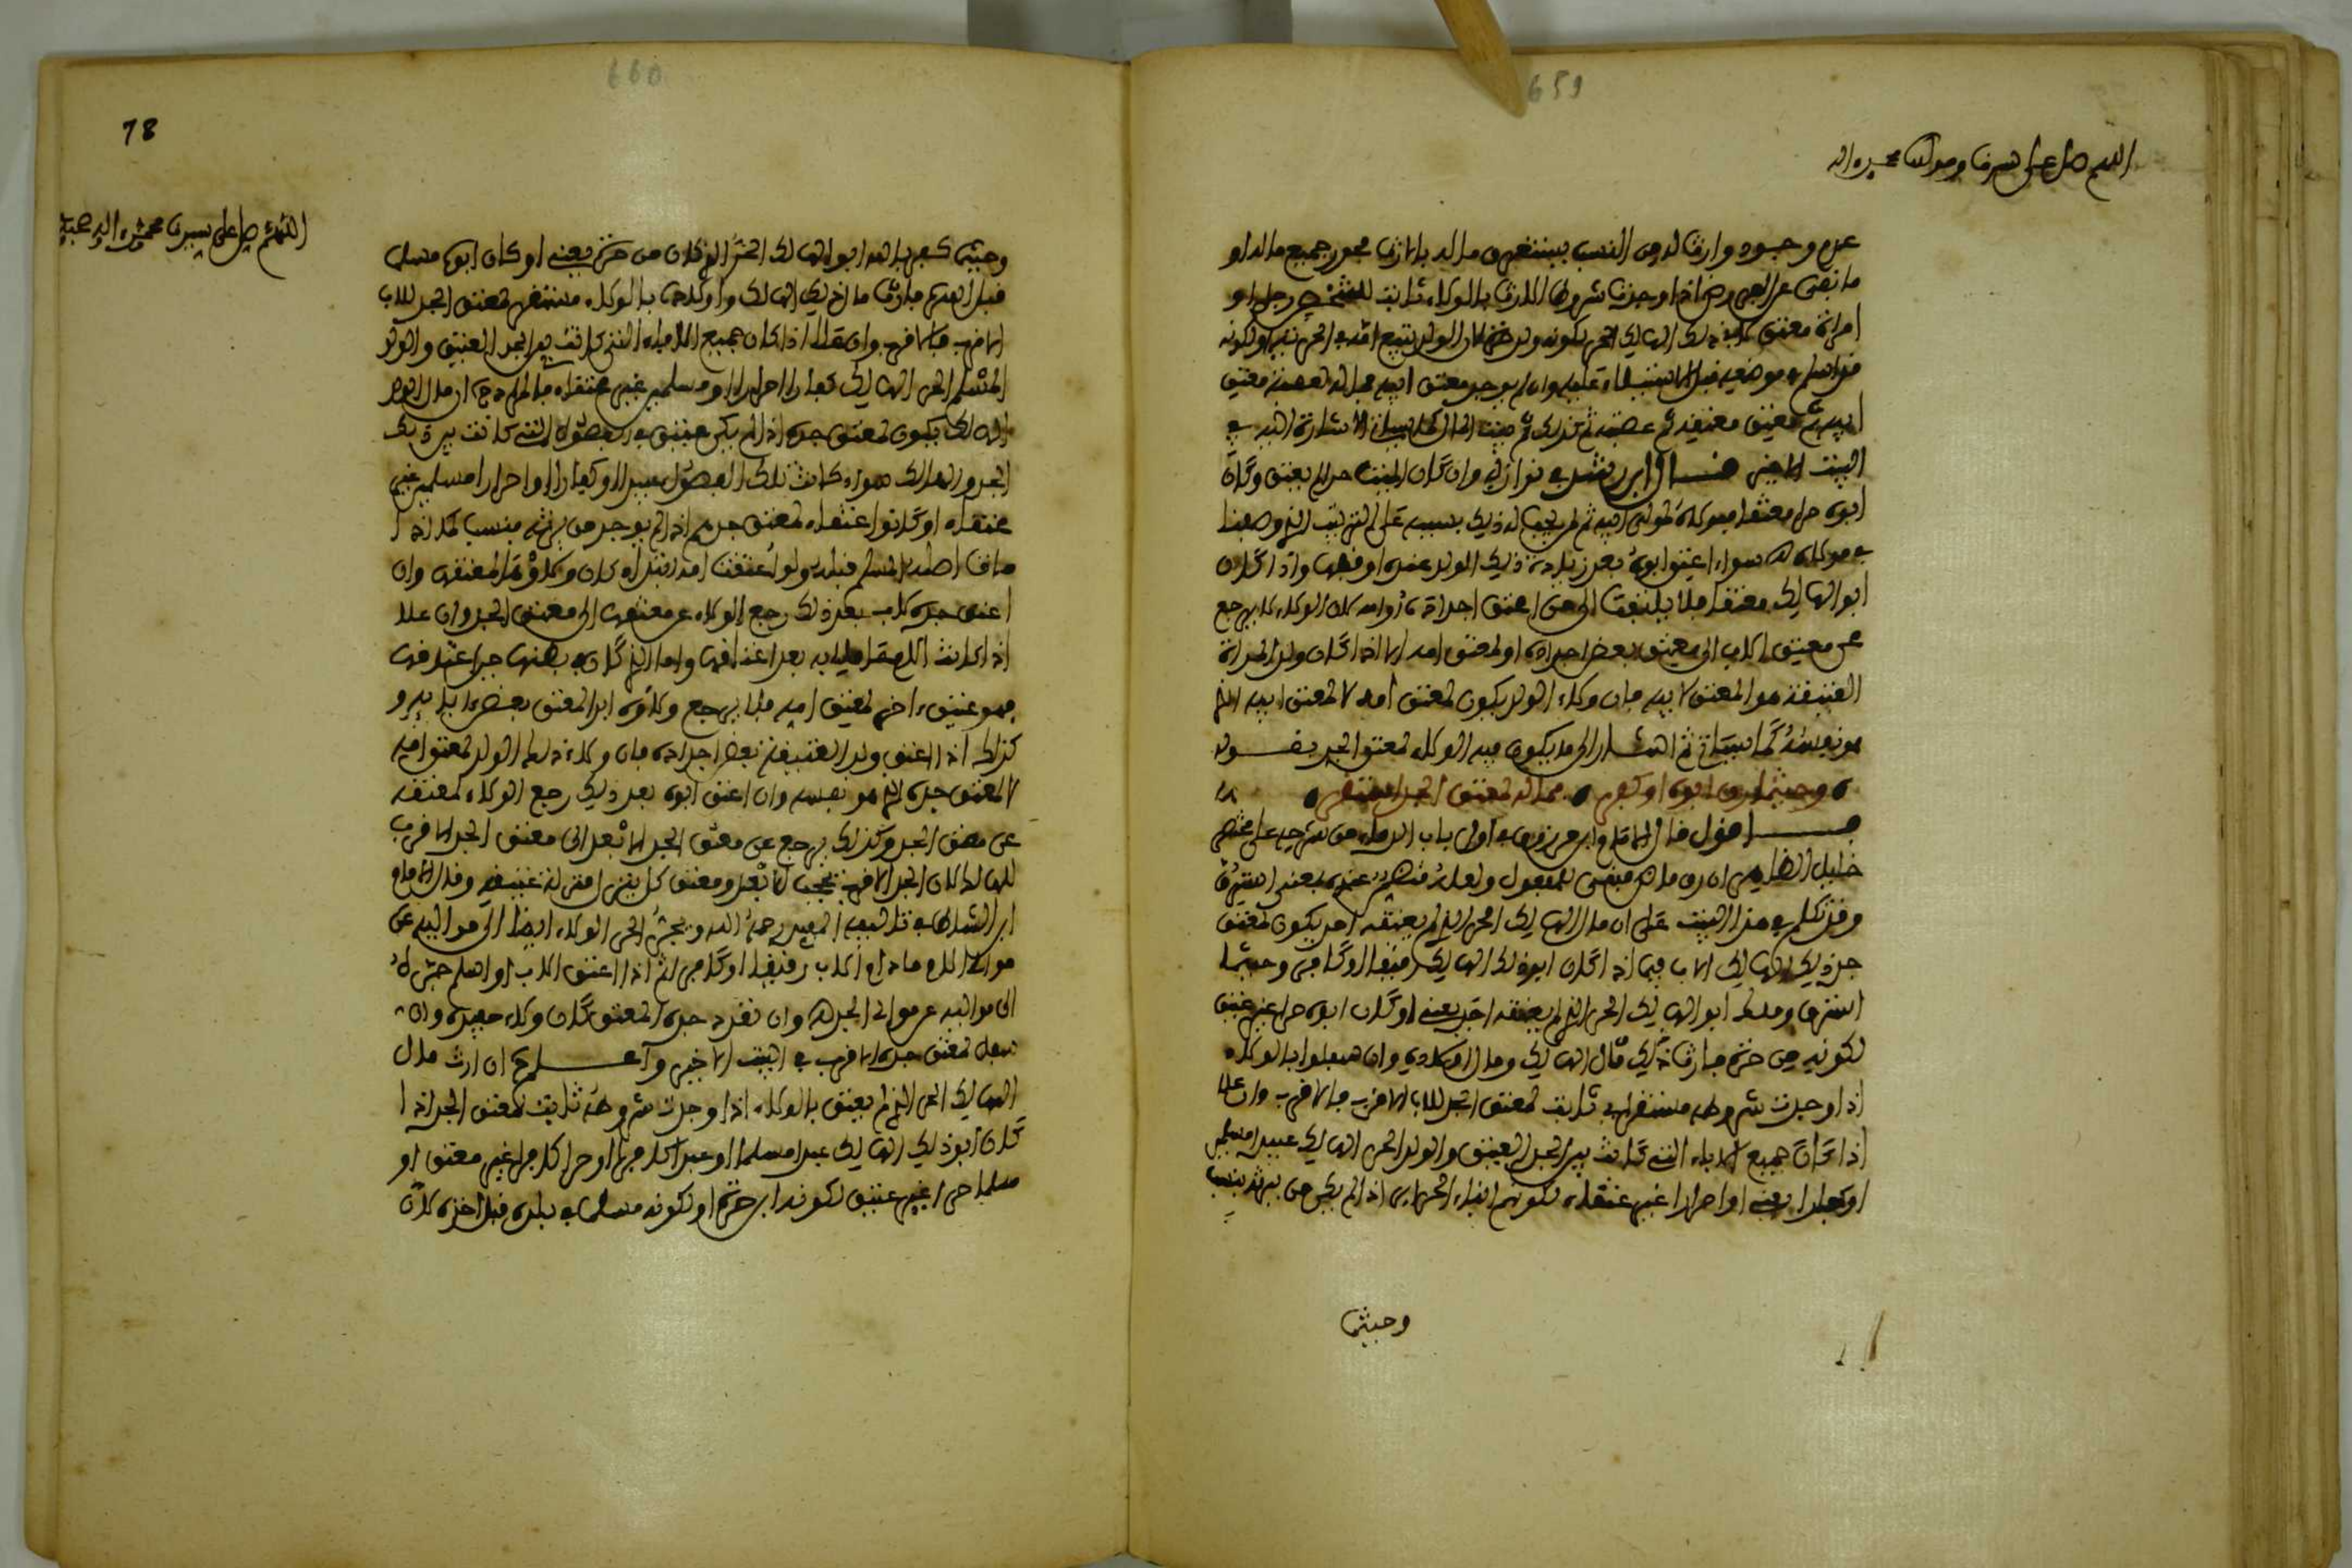 659
اللهم صل على سيدنا ومولانا محمد واله
عدم وجود وارث له من النسب يستغرق ماله بالارث يحوز جميع ماله او
ما بقي عن الفروض اذا وجدت شروط الارث بالولاء ثابت رجل او
امراة معتق ذلك الهالك الحر لكونه ولد حرة لان الولد يتبع امه في الحرية او لكونه
قد اسلم في موضعه قبل الاستيلاء عليه وان لم يوجد معتق ابيه فماله لعصبة معتق
ابيه ثم معتق معتقه ثم عصبته ثم كذلك ثم بيت المال كما سياتي الاشارة اليه في
البيت الاخير قال ابن رشد في نوازله وان كان الميت حرا لم يعتق وكان
ابوه حرا معتقا فولاؤه لمولى ابيه ثم لمن يجب له ذلك بسببه على الترتيب الذي وصفنا
في مولاه سواء اعتق ابوه بعد زيادة ذلك الولد عنده او قبلها واذا كان
ابو الهالك معتقا فلا يلتفت الى من اعتق اجداده او امه لان الولاء لا يرجع
عن معتق الاب الى معتق بعض اجداده او لمعتق امه الا اذا كان ولد المراة
العتيقة هو المعتق لابيه فان ولاء الولد يكون لمعتق امه لا لمعتق ابيه الذي
هو نفسه كما سياتي ثم اشار الى ما يكون فيه الولاء لمعتق الجد بقوله
وحيثما رق ابوه او كفر فماله لمعتق الجد استقر
اقول قال الامام ابن مرزوق في اول باب الدماء من شرحه على مختصر
خليل الظاهر ان رق ما هو مبني للمفعول ولعل عنده بمعنى استرق
وقد تكلم في هذا البيت على ان مال الهالك الحر الذي لم يعتقه احد يكون لمعتق
جد ذلك الهالك الاب فيما اذا كان ابو ذلك الهالك رقيقا او كافرا وحيثما
استرق وملك ابو الهالك الحر الذي لم يعتقه احد يعني او كان ابوه حرا غير عتيق
لكونه من حرة فارث ذلك مال الهالك ومال اولاده وان سفلوا بالولاء
اذا وجدت شروطه مستقر اي ثابت لمعتق الجد للاب الاقرب فالاقرب وان علا
اذا كان جميع الاباء التي كانت بين الجد العتيق والولد الحر الهالك عبيدا مسلمين
او كفارا يعني او احرارا غير عتقاء لكونهم ابناء الحرائر اذا لم يكن من يرثه بنسب
وحيثما
660
78
اللهم صل على سيدنا محمد واله وصحبه
وحيثما كفر بالله ابو الهالك الحر الذي كان من حرة يعني او كان ابوه مسلما
قبل القدرة فارث مال ذلك الهالك واولاده بالولاء مستقر لمعتق الجد للاب
الاقرب فالاقرب وان علا اذا كان جميع الاباء التي كانت بين الجد العتيق والولد
المسلم الحر الهالك كفارا احرارا او مسلمين غير عتقاء فالمراد ان مال الولد
الهالك يكون لمعتق جده اذا لم يكن عتيق في الفصول التي كانت بين ذلك
الجد والهالك سواء كانت تلك الفصول عبيدا او كفارا او احرارا مسلمين غير
عتقاء او كانوا عتقاء لمعتق جدهم اذا لم يوجد من يرثه بنسب كما اذا
مات اصله المسلم قبله ولو اعتقت امه قبل او كان ولاؤها لمعتقها وان
اعتق جده لاب بعد ذلك رجع الولاء عن معتقها الى معتق الجد وان علا
اذا كانت الام حاملا به بعد اعتاقها واما الذي كان في بطنها حين اعتاقها
فهو عتيق اخر لمعتق امه فلا يرجع ولاؤه ابدا لمعتق بعض ابايه و
كذلك اذا اعتق ولد العتيقة بعض اجداده فان ولاء ذلك الولد لمعتق امه
لا لمعتق جده الذي هو نفسه وان اعتق ابوه بعد ذلك رجع الولاء لمعتقه
عن معتق الجد وكذلك يرجع عن معتق الجد الابعد الى معتق الجد الاقرب
للهالك لان الجد الاقرب يحجب الابعد ومعتق كل بمنزلة عتيقه وقال الامام
ابن الشاط في تاليفه المفيد رحمه الله ويجر الحر الولاء ايضا الى مواليه عن
موالي الام ما دام الاب رقيقا او كافرا ثم اذا اعتق الاب او اسلم جره
الى مواليه عن موالي الجد وان تعدد جده المعتق كان ولاء حفيده وان
سفل لمعتق جده الاقرب في البيت الاخير واعلم ان ارث مال
الهالك الحر الذي لم يعتق بالولاء اذا وجدت شروطه ثابت لمعتق الجد اذا
كان ابو ذلك الهالك عبدا مسلما او عبدا كافرا او حرا كافرا غير معتق او
مسلما حرا غير عتيق لكونه ابن حرة او لكونه مسلما في بلده قبل اخذه لان